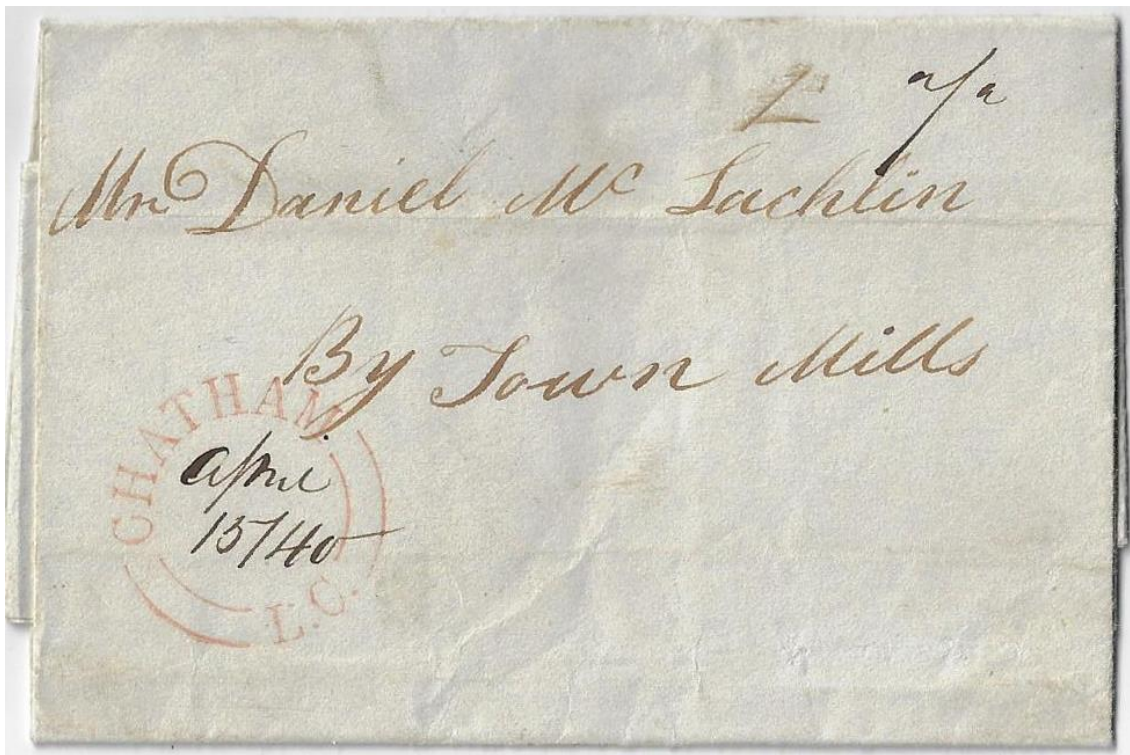 Mr Daniel Mc Lachlin
By Town Mills
CHATHAM
April
15/40
L.C.